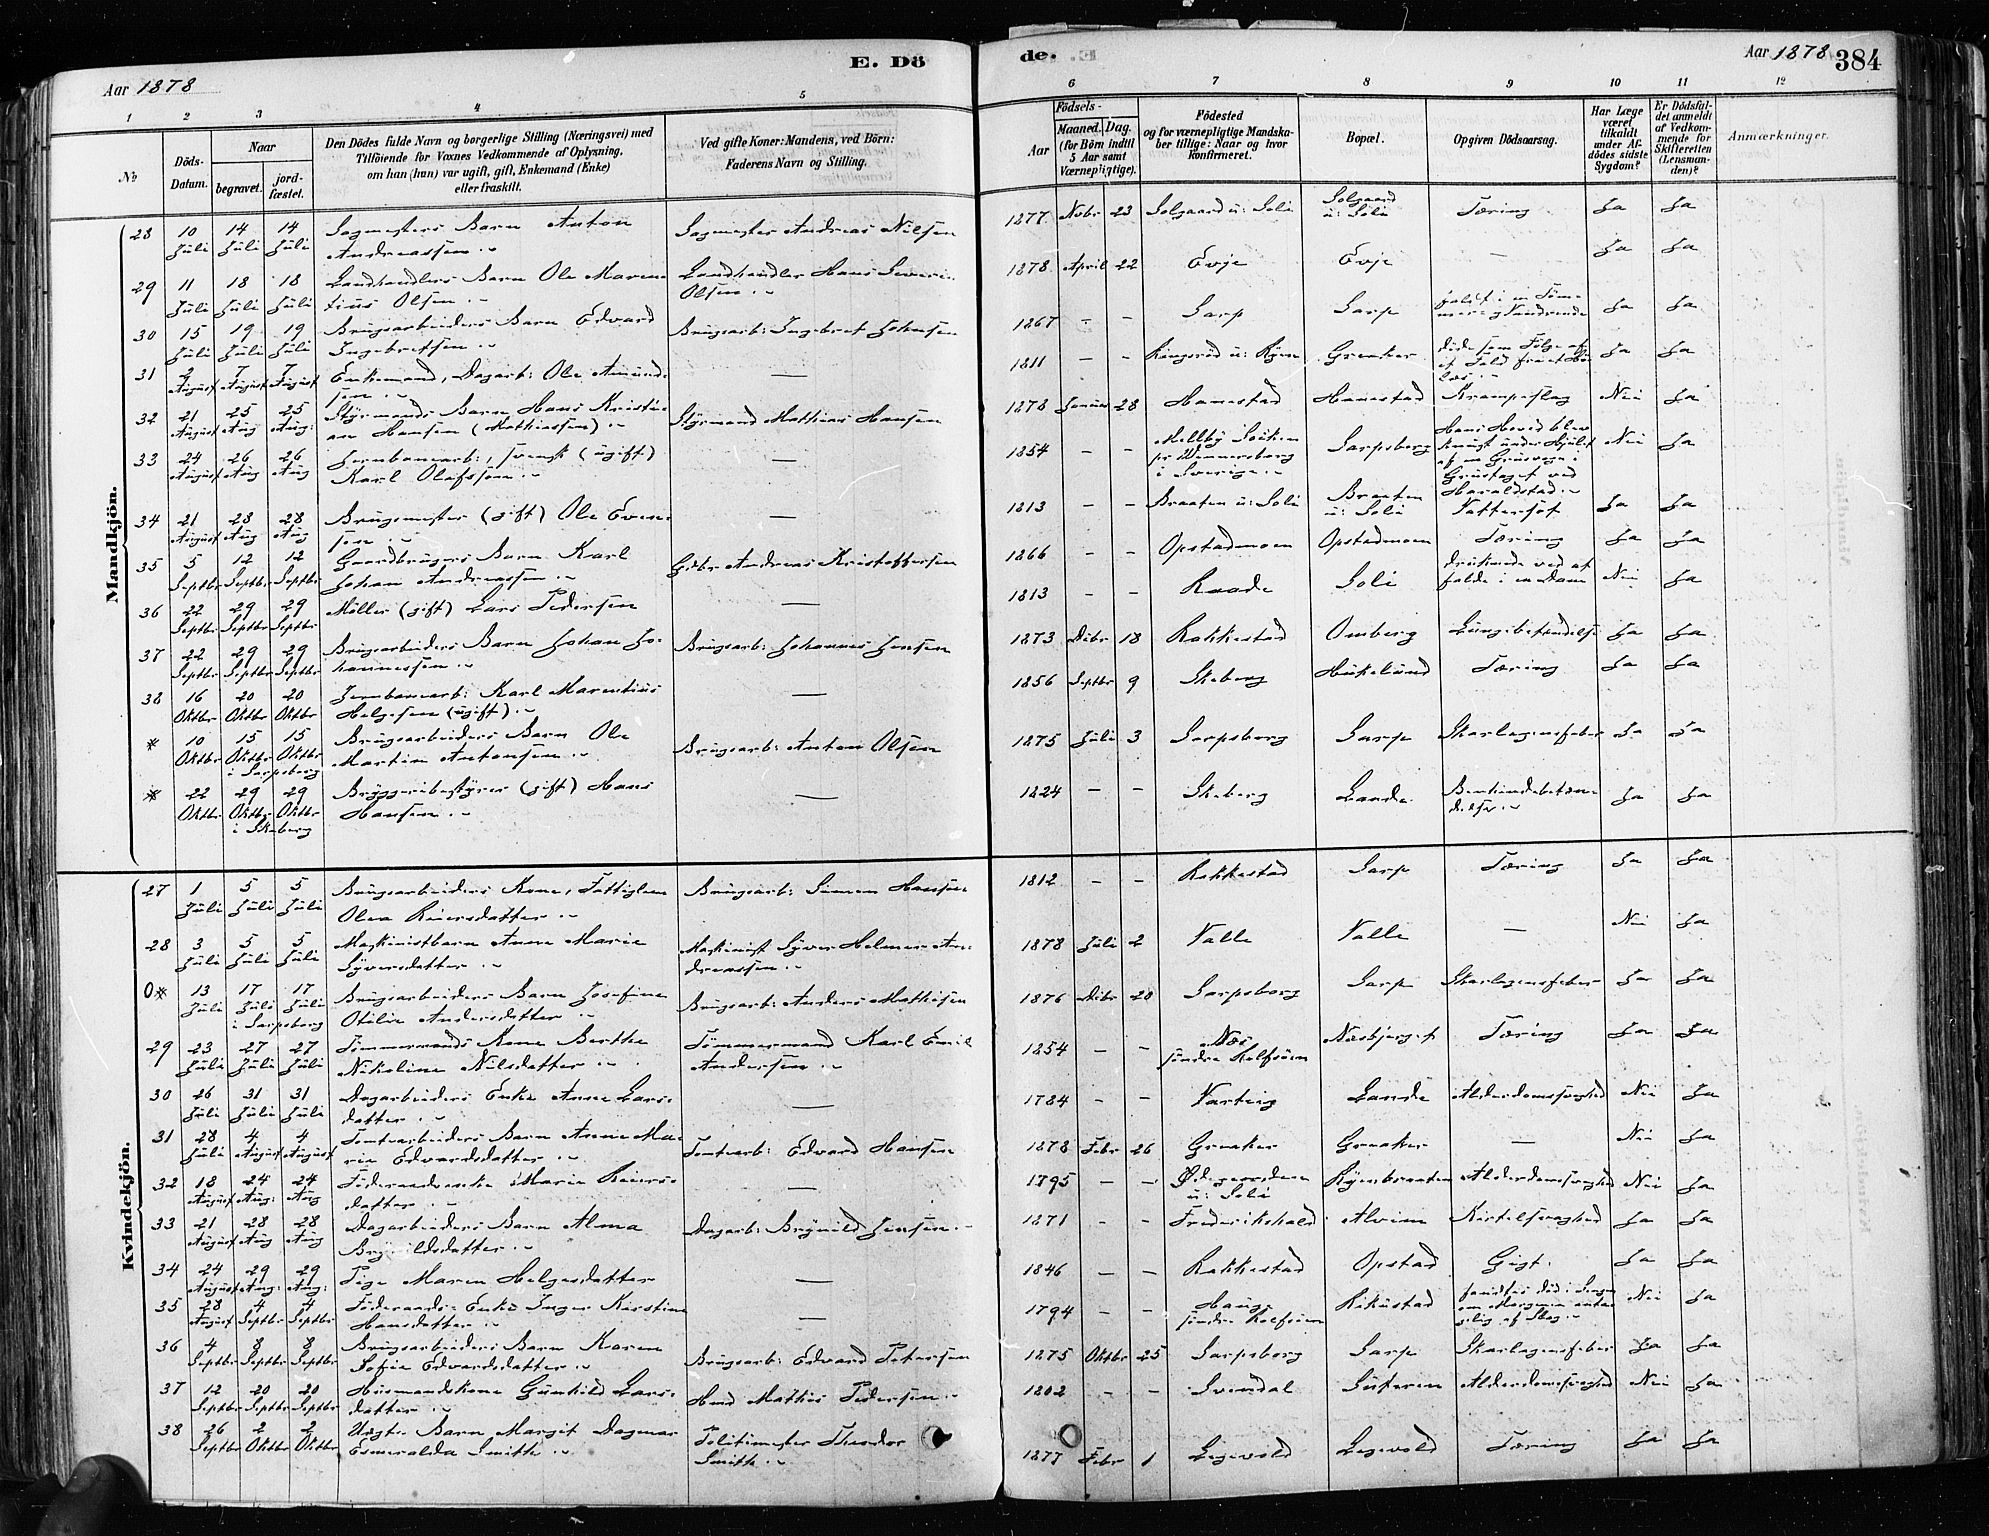 Aar 1878
E. Dö
de.
Aar 1878
384
1 2 3 4 5 6 7 8 9 10 11 12
No
Döds-Datum.
Naar
begravet.
jord-fæstet.
Den Dödes fulde Navn og borgerlige Stilling (Næringsvei) med
Tilföiende for Voxnes Vedkommende af Oplysning,
om han (hun) var ugift, gift, Enkemand (Enke)
eller fraskilt.
Ved gifte Koner: Mandens, ved Börn:
Faderens Navn og Stilling.
Aar
Födsels-
Maaned. Dag.
(for Börn indtil
5 Aar samt
Værnepligtige).
Födested
og for værnepligtige Mandska-
ber tillige: Naar og hvor
konfirmeret.
Bopæl.
Opgiven Dödsaarsag.
Har Læge
været
tilkaldt
under Af-
dödes sidste
Sygdom?
Er Dödsfal-
det anmeldt
af Vedkom-
mende for
Skifteretten
(Lensman-
den)?
Anmærkninger.
Mandkjön.
28 10 Juli 14 Juli 14 Juli Sagmesters Barn Anton Andreassen Sagmester Andreas Nilsen 1877 Novbr 23 Solgaard u: Soli Solgaard u: Soli Tæring Ja Ja
29 11 Juli 18 Juli 18 Juli Landhandlers Barn Ole Marentius Olsen Landhandler Hans Severin Olsen 1878 April 22 Evje Evje — Ja Ja
30 15 Juli 19 Juli 19 Juli Brugsarbeiders Barn Edvard Ingebretsen Brugsarb: Ingebret Johnsen 1867 - - Sarp Sarp Ja Ja
31 2 August 7 August 7 August Enkemand, Dagarb: Ole Amundsen — 1811 - - u: Greaker döde som Fölge af et Fald fra et Ja Ja
32 21 August 25 Aug 25 Aug: Styrmands Barn Hans Kristian Hansen (Mathiassen) Styrmand Mathias Hansen 1878 Januar 28 Hanestad Hanestad Krampeslag Nei Ja
33 24 August 26 Aug 26 Aug Jernbanearb:, svensk (ugift) Karl Olafssen — 1854 - - Mellby Soken pr Wennersborg i Sverige Sarpsborg Hans Hoved blev knust under Hjulet af en Grusvogn i Grustaget ved Haraldstad Nei Ja
34 21 August 28 Aug 28 Aug Brugsmester (gift) Ole Evensen — 1813 - - Braaten u: Soli Braaten u: Soli Vattersot Ja Ja
35 5 Septbr 12 Septbr 12 Septbr Gaardbrugers Barn Karl Johan Andreassen Gdbr Andreas Kristoffersen 1866 - - Opstadmoen Opstadmoen Tæring Ja Ja
36 22 Septbr 29 Septbr 29 Septbr Möller (gift) Lars Pedersen — 1813 - - Raade Soli druknede ved at falde i en Dam Nei Ja
37 22 Septbr 29 Septbr 29 Septbr Brugsarbeiders Barn Johan Johannessen Brugsarb: Johannes Jensen 1873 Dcbr 18 Rakkestad Omberg Lungebetændelse Ja Ja
38 16 Oktbr 20 Oktbr 20 Oktbr Jernbanearb: Karl Marentius Helgesen (ugift) — 1856 Septbr 9 Skeberg Hukelund Tæring Ja Ja
* 10 Oktbr 15 Oktbr 15 Oktbr i Sarpsborg Brugsarbeiders Barn Ole Martin Antonsen Brugsarb: Anton Olsen 1875 Juli 3 Sarpsborg Sarp Skarlagensfeber Ja Ja
* 22 Oktbr 29 Oktbr 29 Oktbr i Skeberg Bryggeribestyrer (gift) Hans Hansen — 1824 - - Skeberg Lande Ja Ja
Kvindekjön.
27 1 Juli 5 Juli 5 Juli Brugsarbeiders Kone, Fattiglem Olea Reiersdatter Brugsarb: Simen Hansen 1812 - - Rakkestad Sarp Tæring Ja Ja
28 3 Juli 5 Juli 5 Juli Maskinistbarn Anne Marie Syversdatter Maskinist Syver Helmer Andreassen 1878 Juli 2 Valle Valle — Nei Ja
0* 13 Juli 17 Juli 17 Juli i Sarpsborg Brugsarbeiders Barn Josefine Otilie Andersdatter Brugsarb: Anders Mathisen 1876 Dcbr 28 Sarpsborg Sarp Skarlagensfeber Ja Ja
29 23 Juli 27 Juli 27 Juli Tömmermands Kone Berthe Nikoline Nilsdatter Tömmermand Karl Emil Andersen 1854 - - Næs söndre Rolfsöen Næsbjerget Tæring Ja Ja
30 26 Juli 31 Juli 31 Juli Dagarbeiders Enke Anne Larsdatter — 1784 - - Varteig Lande Alderdomssvaghed Nei Ja
31 28 Juli 4 August 4 August Tomtearbeiders Barn Anne Marie Edvardsdatter Tomtearb: Edvard Hansen 1878 Febr 26 Greaker Greaker — Nei Ja
32 18 August 24 Aug: 24 Aug Föderaadsenke Marie Reiersdatter — 1795 - - Ödegaarden u: Soli Alderdomssvaghed Nei Ja
33 21 August 28 Aug 28 Aug Dagarbeiders Barn Alma Brynildsdatter Dagarb: Brynild Jensen 1871 - - Frederikshald Alvim Kirtelsvaghed Ja Ja
34 24 August 29 Aug: 29 Aug: Pige Maren Helgesdatter — 1846 - - Rakkestad Opstad Gigt Ja Ja
35 28 August 4 Septbr 4 Septbr Föderaads-Enke Inger Kirstine Hansdatter — 1794 - - Hauge söndre Rolfsöen fandtes död i Sengen om Morgenen antagelig af Slag Nei Ja
36 4 Septbr 8 Septbr 8 Septbr Brugsarbeiders Barn Karen Sofie Edvardsdatter Brugsarb: Edvard Petersen 1875 Oktbr 25 Sarpsborg Sarp Skarlagensfeber Ja Ja
37 12 Septbr 20 Septbr 20 Septbr Husmandskone Gunhild Larsdatter Husmd Mathis Pedersen 1802 - - Svendal Alderdomssvaghed Nei Ja
38 26 Septbr 2 Oktbr 2 Oktbr Uægte Barn Margit Dagmar Esmeralda Smitth Politimester Theodor Smitth 1877 Febr 1 Tæring Ja Ja